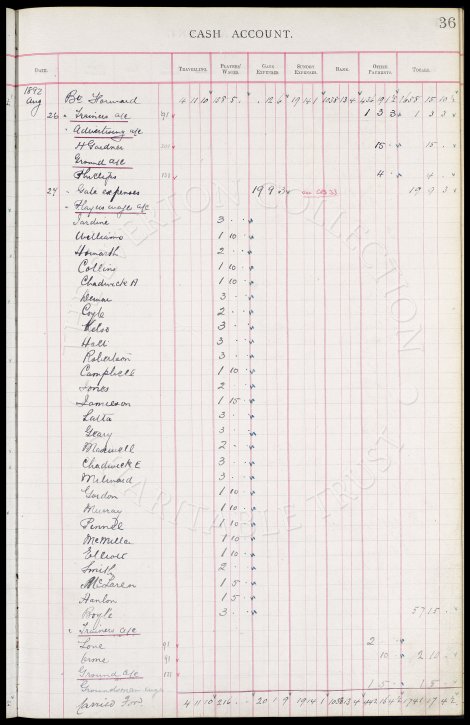 36
CASH ACCOUNT.
DATE. TRAVELLING. PLAYERS' WAGES. GATE EXPENSES. SUNDRY EXPENSES. BANK. OTHER PAYMENTS. TOTALS.
1892
Aug Bt Forward 4 11 10 158 5 . . 12 6 19 14 1 1038 13 4
26 " Trainers a/c 91 1 3 3 1 3 3
" Advertising a/c
H Gardner 15 . 15 .
Ground a/c
Phillips 133 4 . 4 .
27 " Gate expenses 19 9 3 19 9 3
" Players wages a/c
Jardine 3 . .
Williams 1 10 .
Howarth 2 . .
Collins 1 10 .
Chadwick A 1 10 .
Dewar 3 . .
Coyle 2 . .
Kelso 3 . .
Holt 3 . .
Robertson 3 . .
Campbell 1 10 .
Jones 2 . .
Jamieson 1 15 .
Latta 3 . .
Geary 3 . .
Maxwell 2 . .
Chadwick E 3 . .
Milward 3 . .
Gordon 1 10 .
Murray 1 10 .
Pinnell 1 10 .
McMillan 1 10 .
Elliott 1 10 .
Smith 2 . .
McLaren 1 5 .
Hanlon 1 5 .
Boyle 3 . . 57 15 .
" Trainers a/c
Love 91 2 . .
Crone 91 10 . 2 10 .
" Ground a/c 133
Groundsman wages 1 5 . 1 5 .
Carried Ford 4 11 10 216 . . 20 1 9 19 14 1 1038 13 4
EVERTON COLLECTION
CHARITABLE TRUST